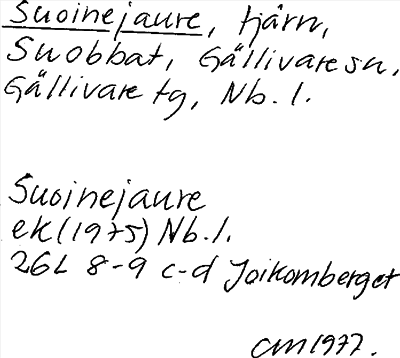 Suoinejaure, tjärn,
Suobbat, Gällivare sn,
Gällivare tg, Nb. l.
Suoinejaure
ek (1975) Nb. l.
26L 8-9 c-d Jaikomberget
CM 1977.